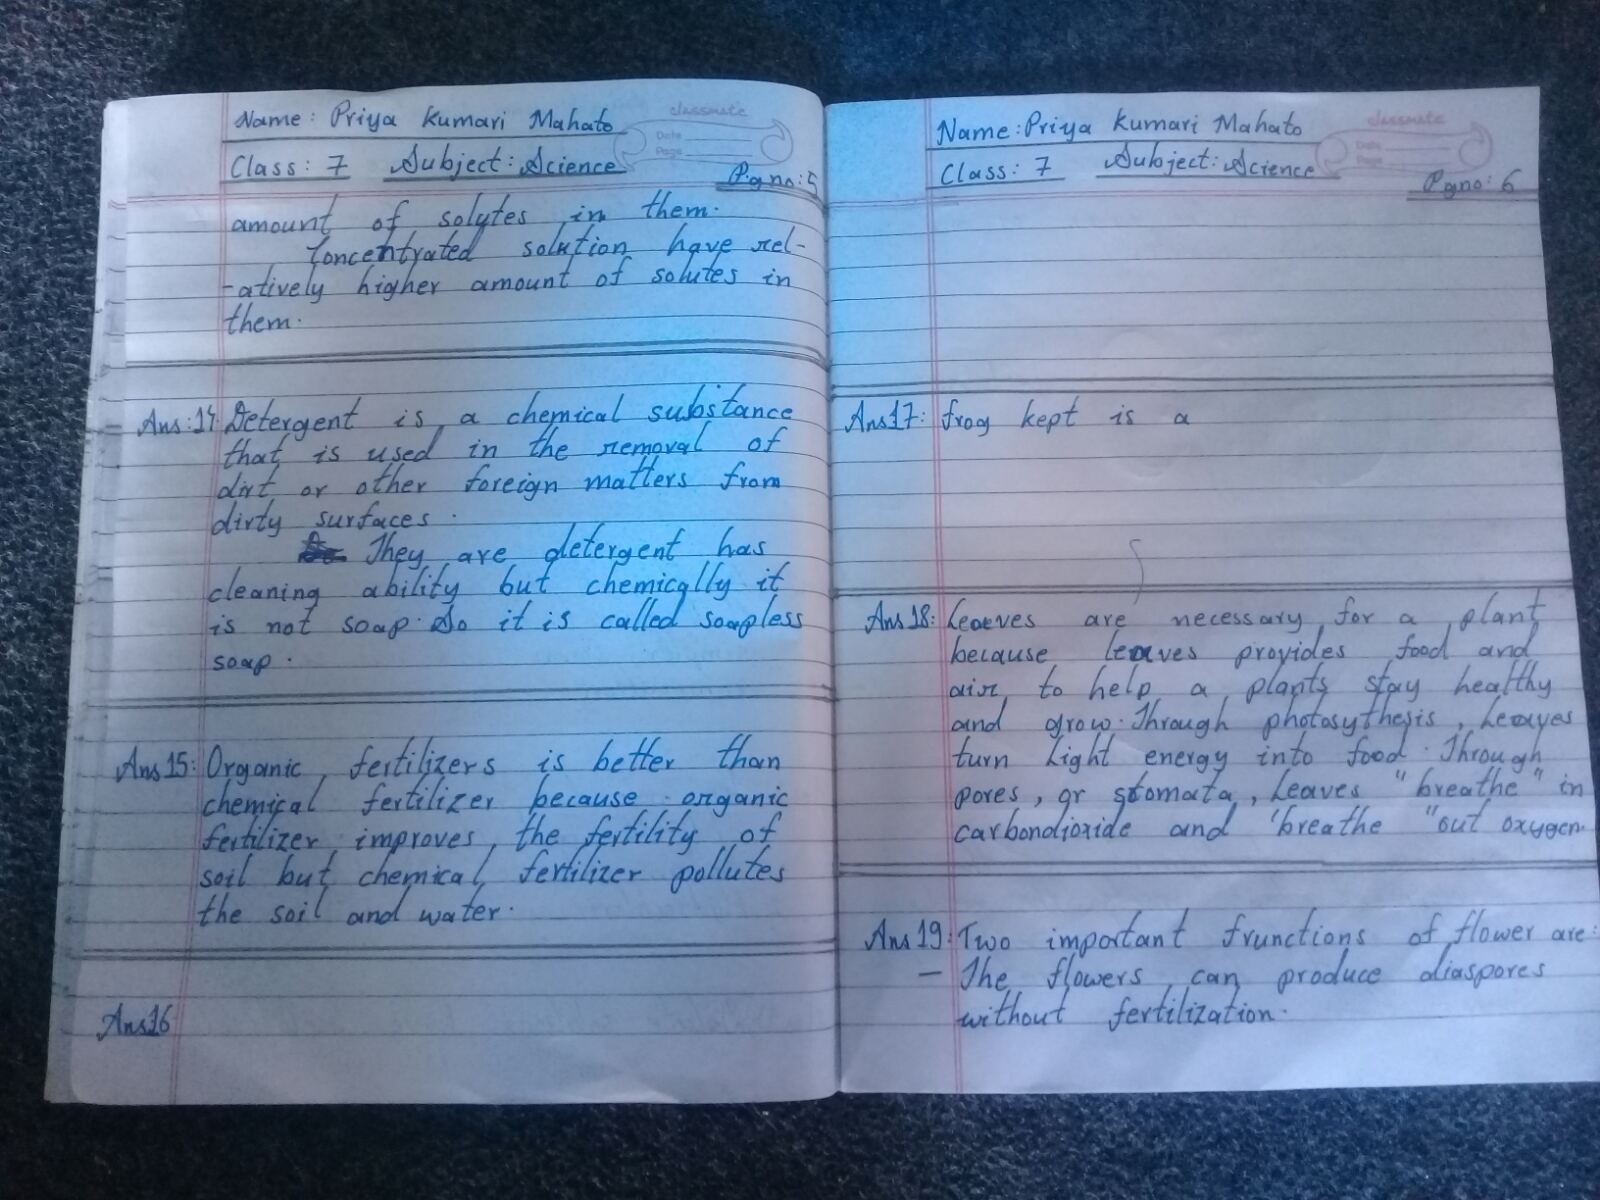 Name: Priya Kumari Mahato
classmate
Date
Page
Class: 7 Subject: Science
Pg no: 5
amount of solytes in them.
Concentrated solution have rel-
-atively higher amount of solutes in
them.
Ans:14 Detergent is a chemical substance
that is used in the removal of
dirt or other foreign matters from
dirty surfaces.
They are detergent has
cleaning ability but chemically it
is not soap. So it is called soapless
soap.
Ans15: Organic fertilizers is better than
chemical fertilizer because organic
fertilizer improves the fertility of
soil but chemical fertilizer pollutes
the soil and water.
Ans16
Name: Priya Kumari Mahato
classmate
Date
Page
Class: 7 Subject: Science
Pg no: 6
Ans17: frog kept is a
Ans18: Leaves are necessary for a plant
because leaves provides food and
air to help a plants stay healthy
and grow. Through photosythesis, Leaves
turn Light energy into food. Through
pores, or stomata, Leaves "breathe" in
carbondioxide and 'breathe "out oxygen.
Ans19: Two important frunctions of flower are:
— The flowers can produce diaspores
without fertilization.